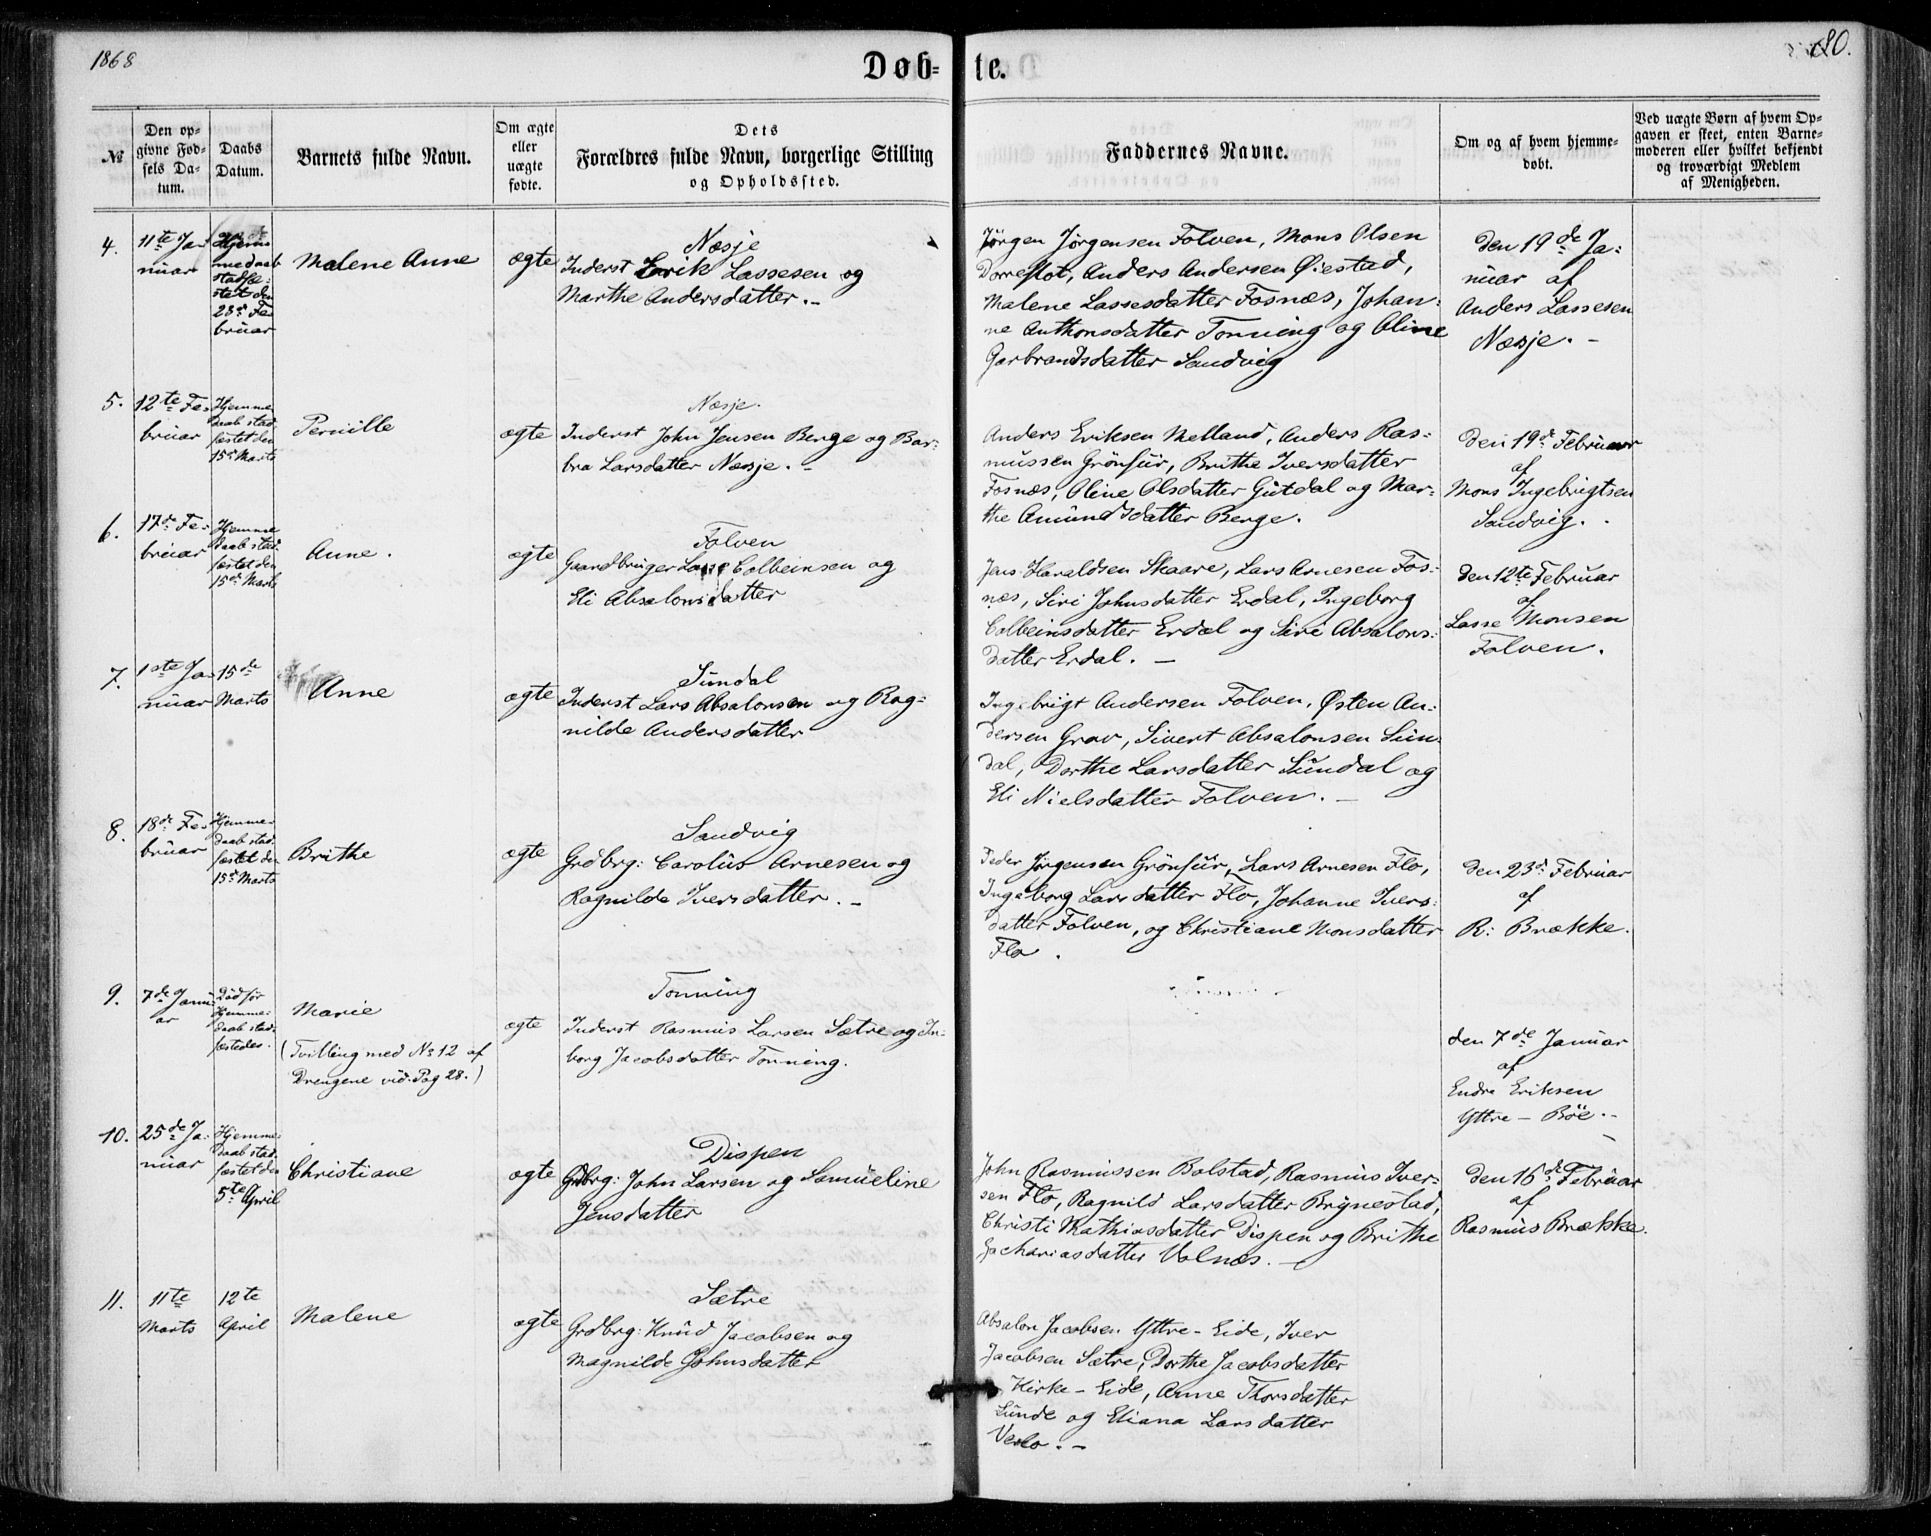 1868
Døb-te.
80.
№
Den op-
givne Fød-
sels Da-
tum.
Daabs
Datum.
Barnets fulde Navn.
Om ægte
eller
uægte
fødte.
Dets
Forældres fulde Navn, borgerlige Stilling
og Opholdssted.
Faddernes Navne.
Om og af hvem hjemme-
døbt.
Ved uægte Børn af hvem Op-
gaven er skeet, enten Barne-
moderen eller hvilket bekjendt
og troværdigt Medlem
af Menigheden.
4.
11te Ja-
nuar
Hjem-
medaab
stadfæ-
stet den
23de Fe-
bruar
Malene Anne
ægte
Næsje
Inderst Lassesen og
Marthe Andersdatter. -
Jörgen Jörgensen Folven, Mons Olsen
Dorreflot, Anders Andersen Øiestad,
Malene Lassesdatter Fosnæs, Johan-
ne Anthonsdatter Tonning og Oline
Garbrandsdatter Sandvig
den 19de Ja-
nuar af
Anders Lassesen
Næsje. -
5.
12te Fe-
bruar
Hjemme
daab stad-
fæstet den
15de Marts
Pernille
ægte
Næsje.
Inderst John Jensen Berge og Bar-
bra Larsdatter Næsje. -
Anders Eriksen Melland, Anders Ras-
mussen Grönfur, Brithe Iversdatter
Fosnæs, Oline Olsdatter Gutdal og Mar-
the Amundsdatter Berge.
den 19de Februar
af
Mons Ingebrigtsen
Sandvig.
6.
17de Fe-
bruar
Hjemme
daab stad-
fæstet den
15de Marts
Anne.
ægte
Folven
Gaardbruger Lasse Colbeinsen og
Eli Absalonsdatter
Jens Haraldsen Skaare, Lars Arnesen Fos-
næs, Siri Johnsdatter Erdal, Ingeborg
Colbeinsdatter Erdal og Siri Absalons-
datter Erdal. -
den 12te Februar
af
Lasse Monsen
Folven.
7.
1ste Ja-
nuar
15de
Marts
Anne
ægte
Sundal
Inderst Lars Absalonsen og Rag-
nilde Andersdatter
Ingebrigt Andersen Folven, Østen An-
dersen Grov, Sivert Absalonsen Sun-
dal, Dorthe Larsdatter Sundal og
Eli Nielsdatter Folven. -
8.
18de Fe-
bruar
Hjemme-
daab stad-
fæstet den
15de Marts
Brithe
ægte
Sandvig
Grdbrg: Carolus Arnesen og
Ragnilde Iversdatter. -
Peder Jørgensen Grönfur, Lars Arnesen Flo,
Ingeborg Larsdatter Flo, Johanne Ivers-
datter Folven, og Christiane Monsdatter
Flo.
den 23de Februar
af
R: Brække.
9.
7de Janu-
ar
Död før
Hjemme-
daab stad-
fæstedes.
Marie
(Tvilling med No 12 af
Drengene vid. Pag 28.)
ægte
Tonning
Inderst Rasmus Larsen Sætre og In-
borg Jacobsdatter Tonning.
den 7de Januar
af
Endre Eriksen
Yttre - Böe. -
10.
25de Ja-
nuar
Hjemme-
daab stad-
fæstet den
5te April
Christiane
ægte
Dispen
Grdbrg: John Larsen og Samueline
Jensdatter
John Rasmussen Bolstad, Rasmus Iver-
sen Flo, Ragnild Larsdatter Brynestad,
Christi Mathiasdatter Dispen og Brithe
Zachariasdatter Valnæs. -
den 16de Februar
af
Rasmus Brække.
11.
11te
Marts
12te
April
Malene
ægte
Sætre
Grdbrg: Knud Jacobsen og
Magnilde Johnsdatter
Absalon Jacobsen Yttre-Eide, Iver
Jacobsen Sætre, Dorthe Jacobsdatter
Kirke-Eide, Anne Thorsdatter
Sunde og Eliana Larsdatter
Veslo. -